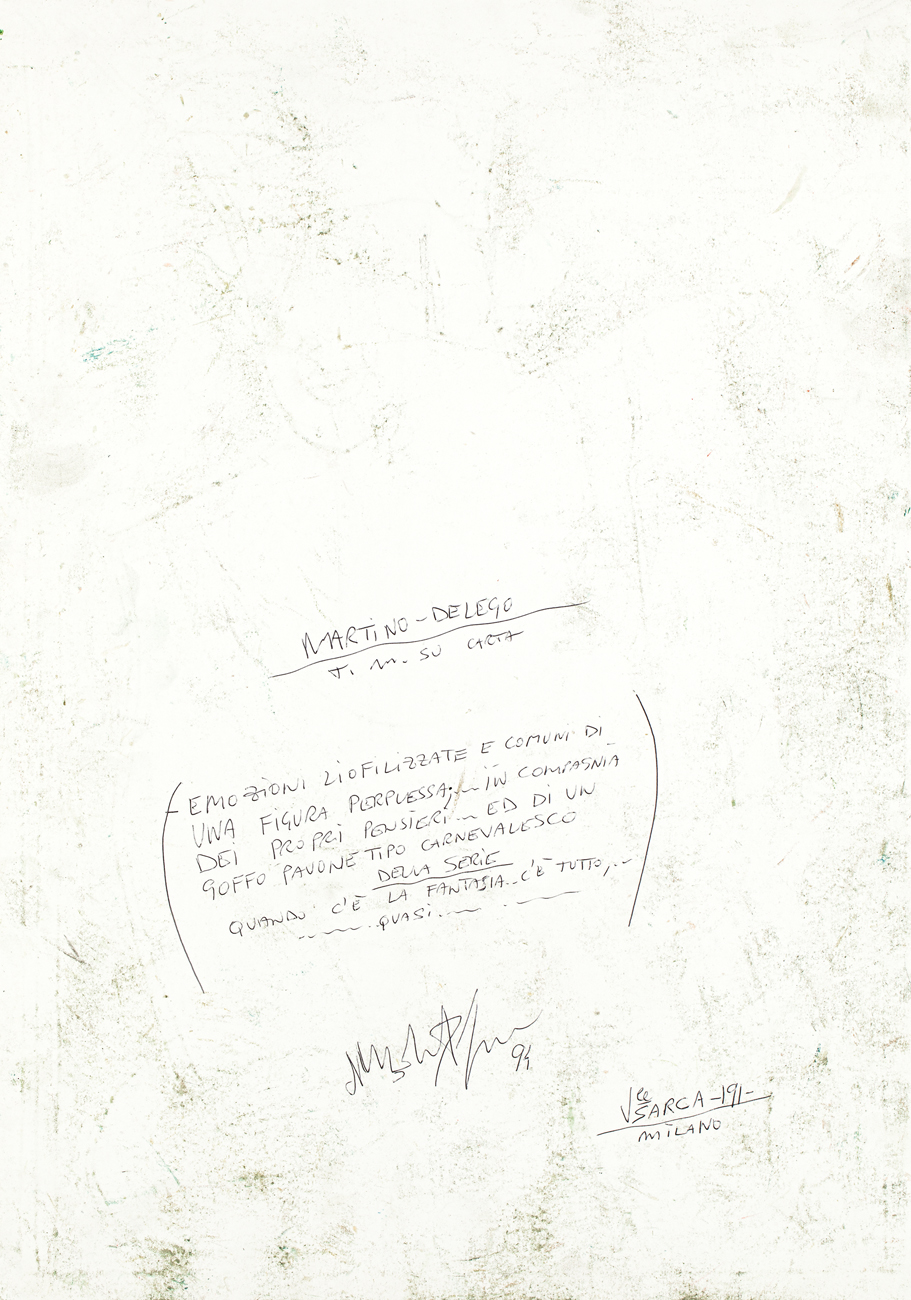 MARTINO-DELEGO
T. M. SU CARTA
EMOZIONI LIOFILIZZATE E COMUNI DI
UNA FIGURA PERPLESSA;... IN COMPAGNIA
DEI PROPRI PENSIERI... ED DI UN
GOFFO PAVONE TIPO CARNEVALESCO
DELLA SERIE
QUANDO C'È LA FANTASIA... C'È TUTTO,...
...QUASI...
94
Vle SARCA-191-
MILANO